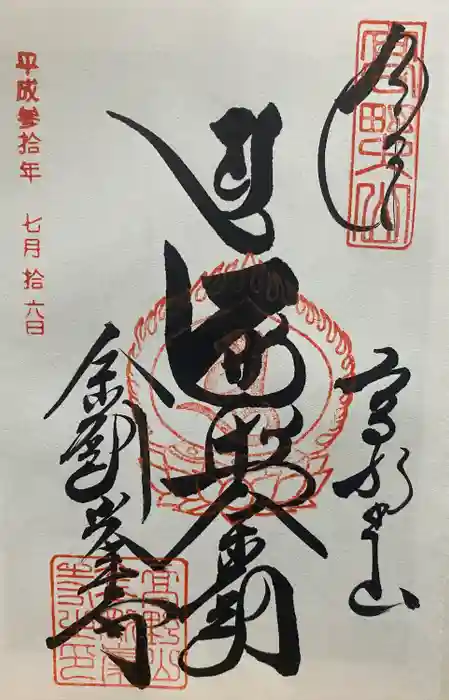 奉拝
高野山
高野山
遍照金剛
金剛峯寺
平成参拾年 七月拾六日